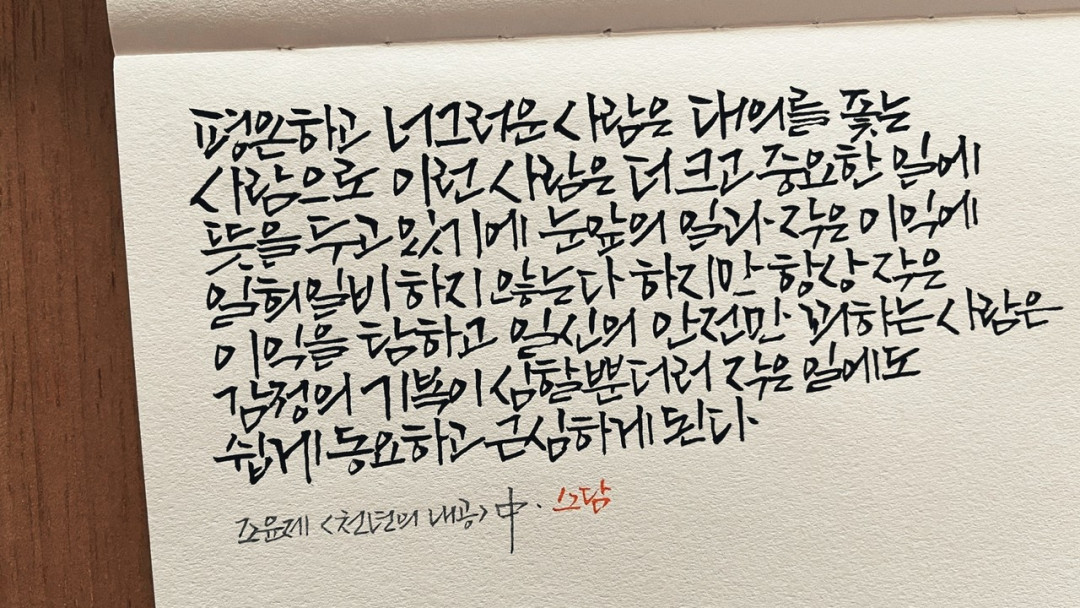 평온하고 너그러운 사람은 대의를 쫓는
사람으로 이런 사람은 더 크고 중요한 일에
뜻을 두고 있기에 눈앞의 일과 작은 이익에
일희일비 하지 않는다 하지만 항상 작은
이익을 탐하고 일신의 안전만 꾀하는 사람은
감정의 기복이 심할뿐더러 작은 일에도
쉽게 동요하고 근심하게 된다.
조윤제 <천년의 내공> 中. 스담